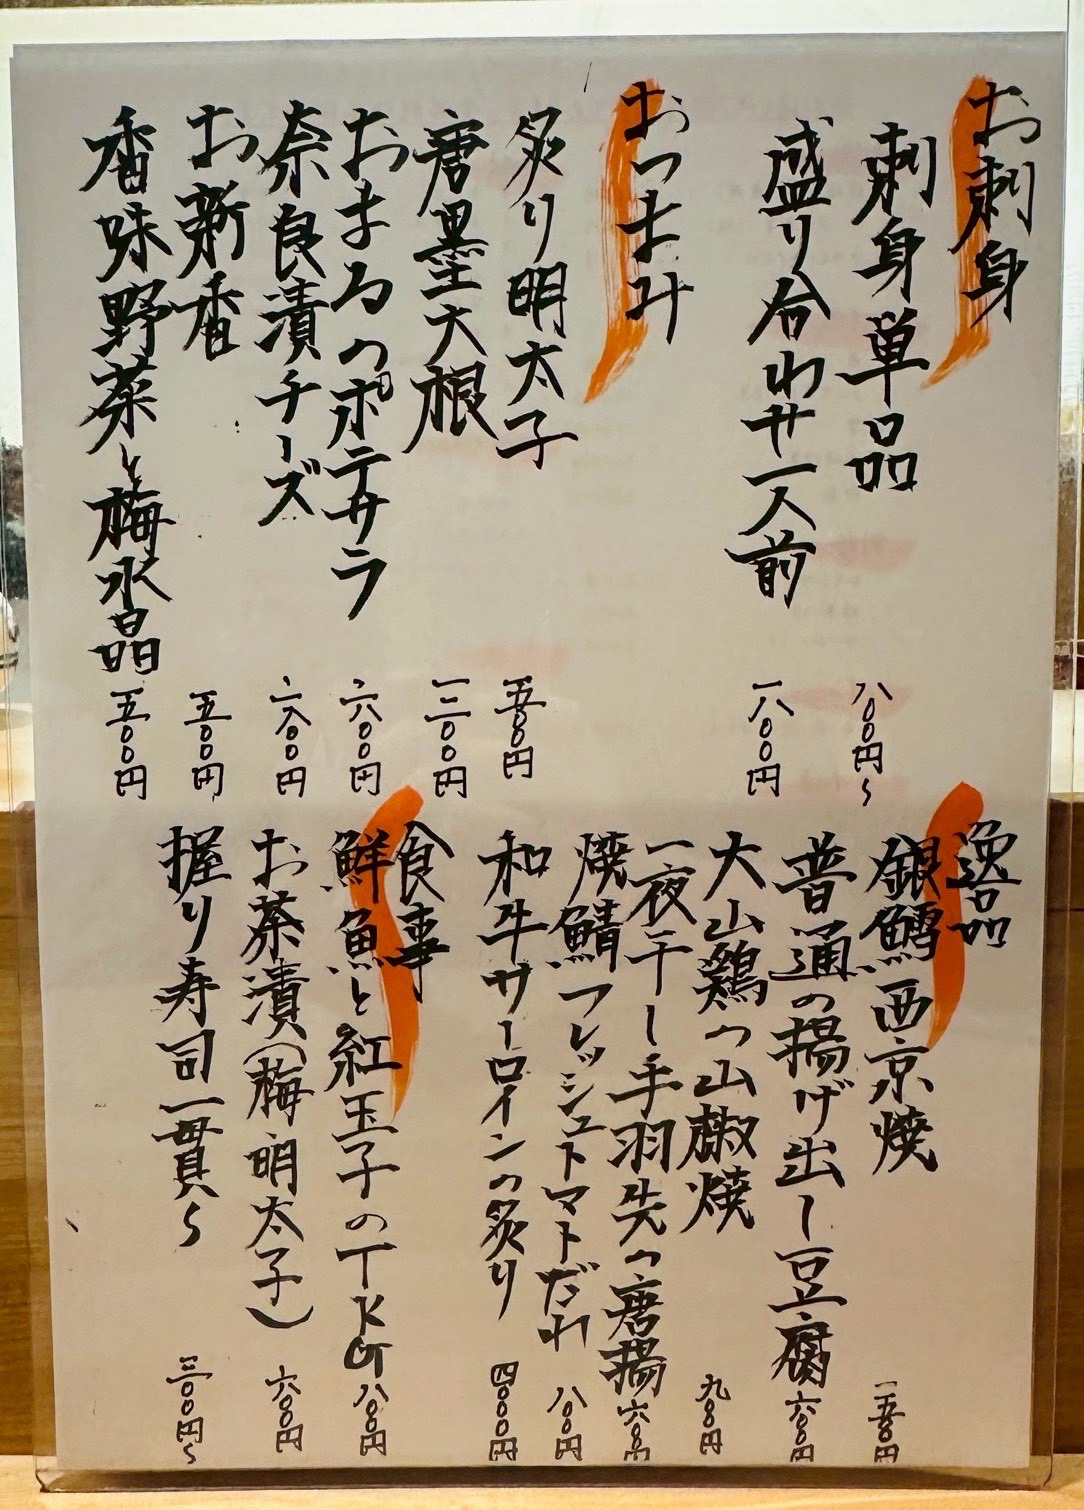 お刺身
刺身単品 八〇〇円〜
盛り合わせ一人前 一八〇〇円
おつまみ
炙り明太子 五〇〇円
唐墨大根 一三〇〇円
おまろのポテサラ 六〇〇円
奈良漬チーズ 六〇〇円
お新香 五〇〇円
香味野菜と梅水晶 五〇〇円
逸品
銀鱈西京焼 一五〇〇円
普通の揚げ出し豆腐 六〇〇円
大山鶏の山椒焼 九〇〇円
一夜干し手羽先の唐揚 六〇〇円
焼鯖フレッシュトマトだれ 八〇〇円
和牛サーロインの炙り 四〇〇〇円
食事
鮮魚と紅玉子のTKG 八〇〇円
お茶漬(梅 明太子) 六〇〇円
握り寿司一貫〜 三〇〇円〜